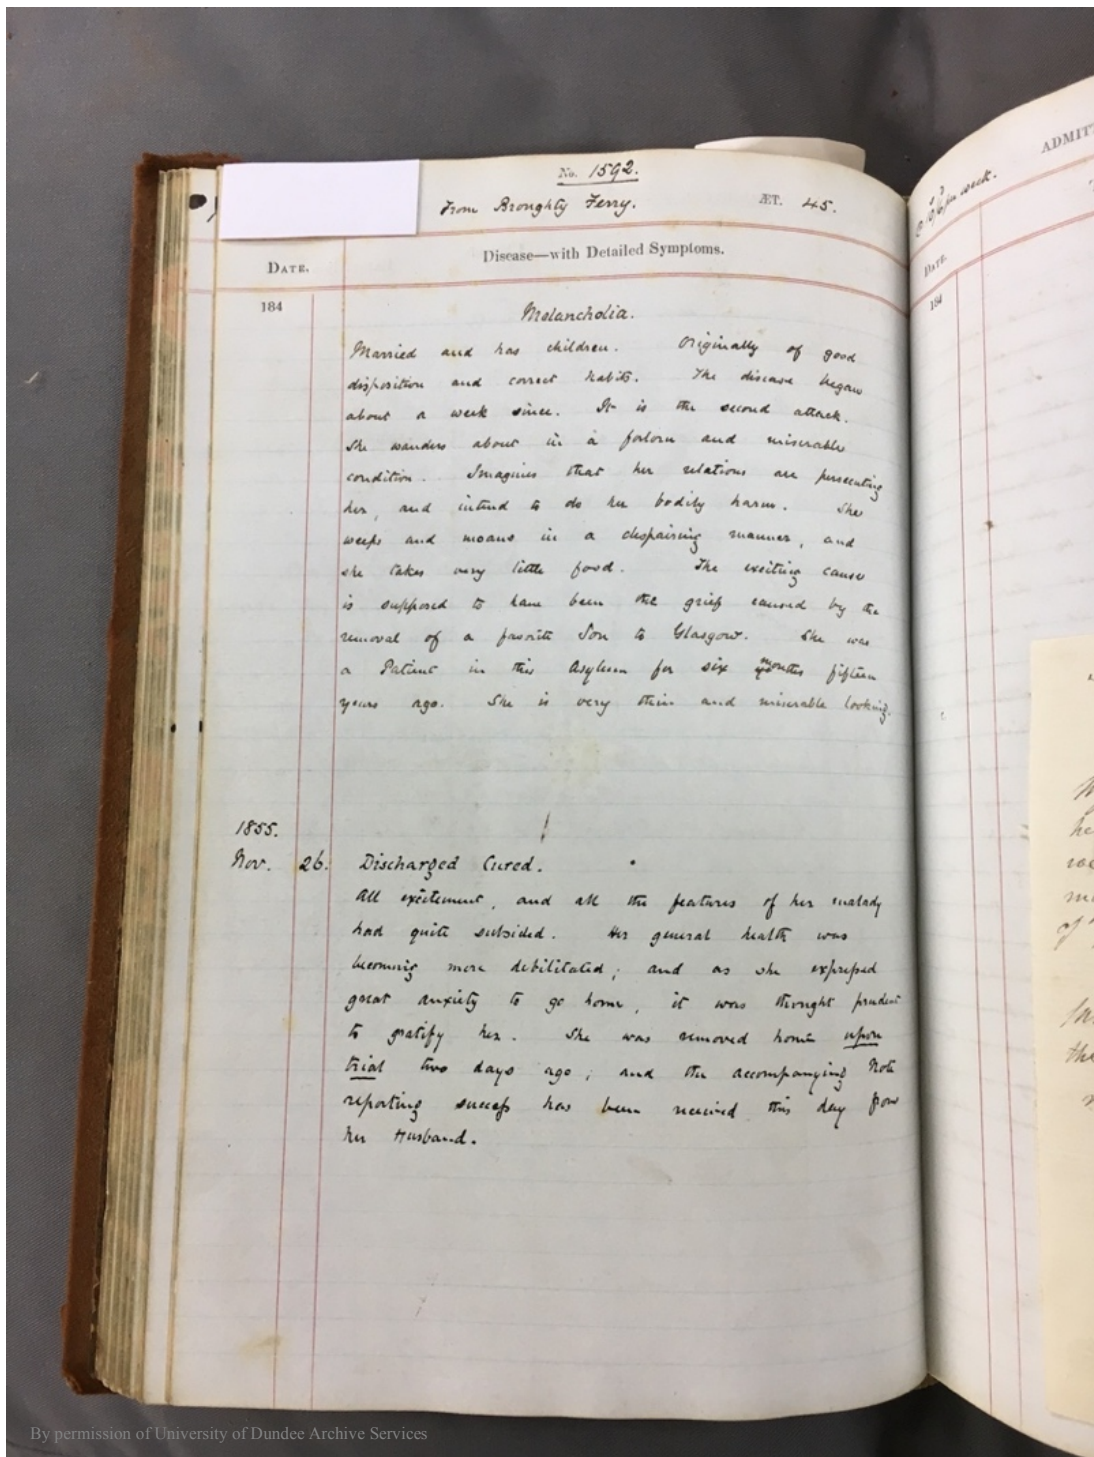 No. 1592.
From Broughty Ferry. ÆT. 45.
DATE. Disease—with Detailed Symptoms.
184
Melancholia.
Married and has children. Originally of good
disposition and correct habits. The disease began
about a week since. It is the second attack.
She wanders about in a forlorn and miserable
condition. Imagines that her relations are persecuting
her, and intend to do her bodily harm. She
weeps and moans in a despairing manner, and
she takes very little food. The exciting cause
is supposed to have been the grief caused by the
removal of a favorite Son to Glasgow. She was
a Patient in this Asylum for six months fifteen
years ago. She is very thin and miserable looking.
1855.
Nov. 26. Discharged Cured.
All excitement, and all the features of her malady
had quite subsided. Her general health was
becoming more debilitated; and as she expressed
great anxiety to go home, it was thought prudent
to gratify her. She was removed home upon
trial two days ago; and the accompanying Note
reporting success has been received this day from
her Husband.
ADMIT
week.
DATE.
184
he
of
the
By permission of University of Dundee Archive Services